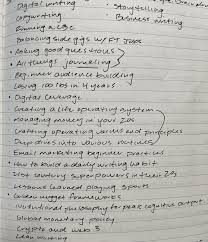 Digital writing
• Storytelling
Copywriting
Business writing
Running a CBC
Balancing side gigs w/ FT Job
• Asking good questions
• All things journaling
Beginner audience building
Losing 100 lbs in 4 years
• Digital leverage
Creating a life operating system
Managing money in your 20s
Crafting operating values and principles
Deep dives into various
Email marketing beginner practices
• How to build a daily writing habit
21st century superpowers in their 20s
Lessons learned playing sports
Career frameworks
for peak cognitive output
Global monetary policy
Crypto and web 3
Lean writing